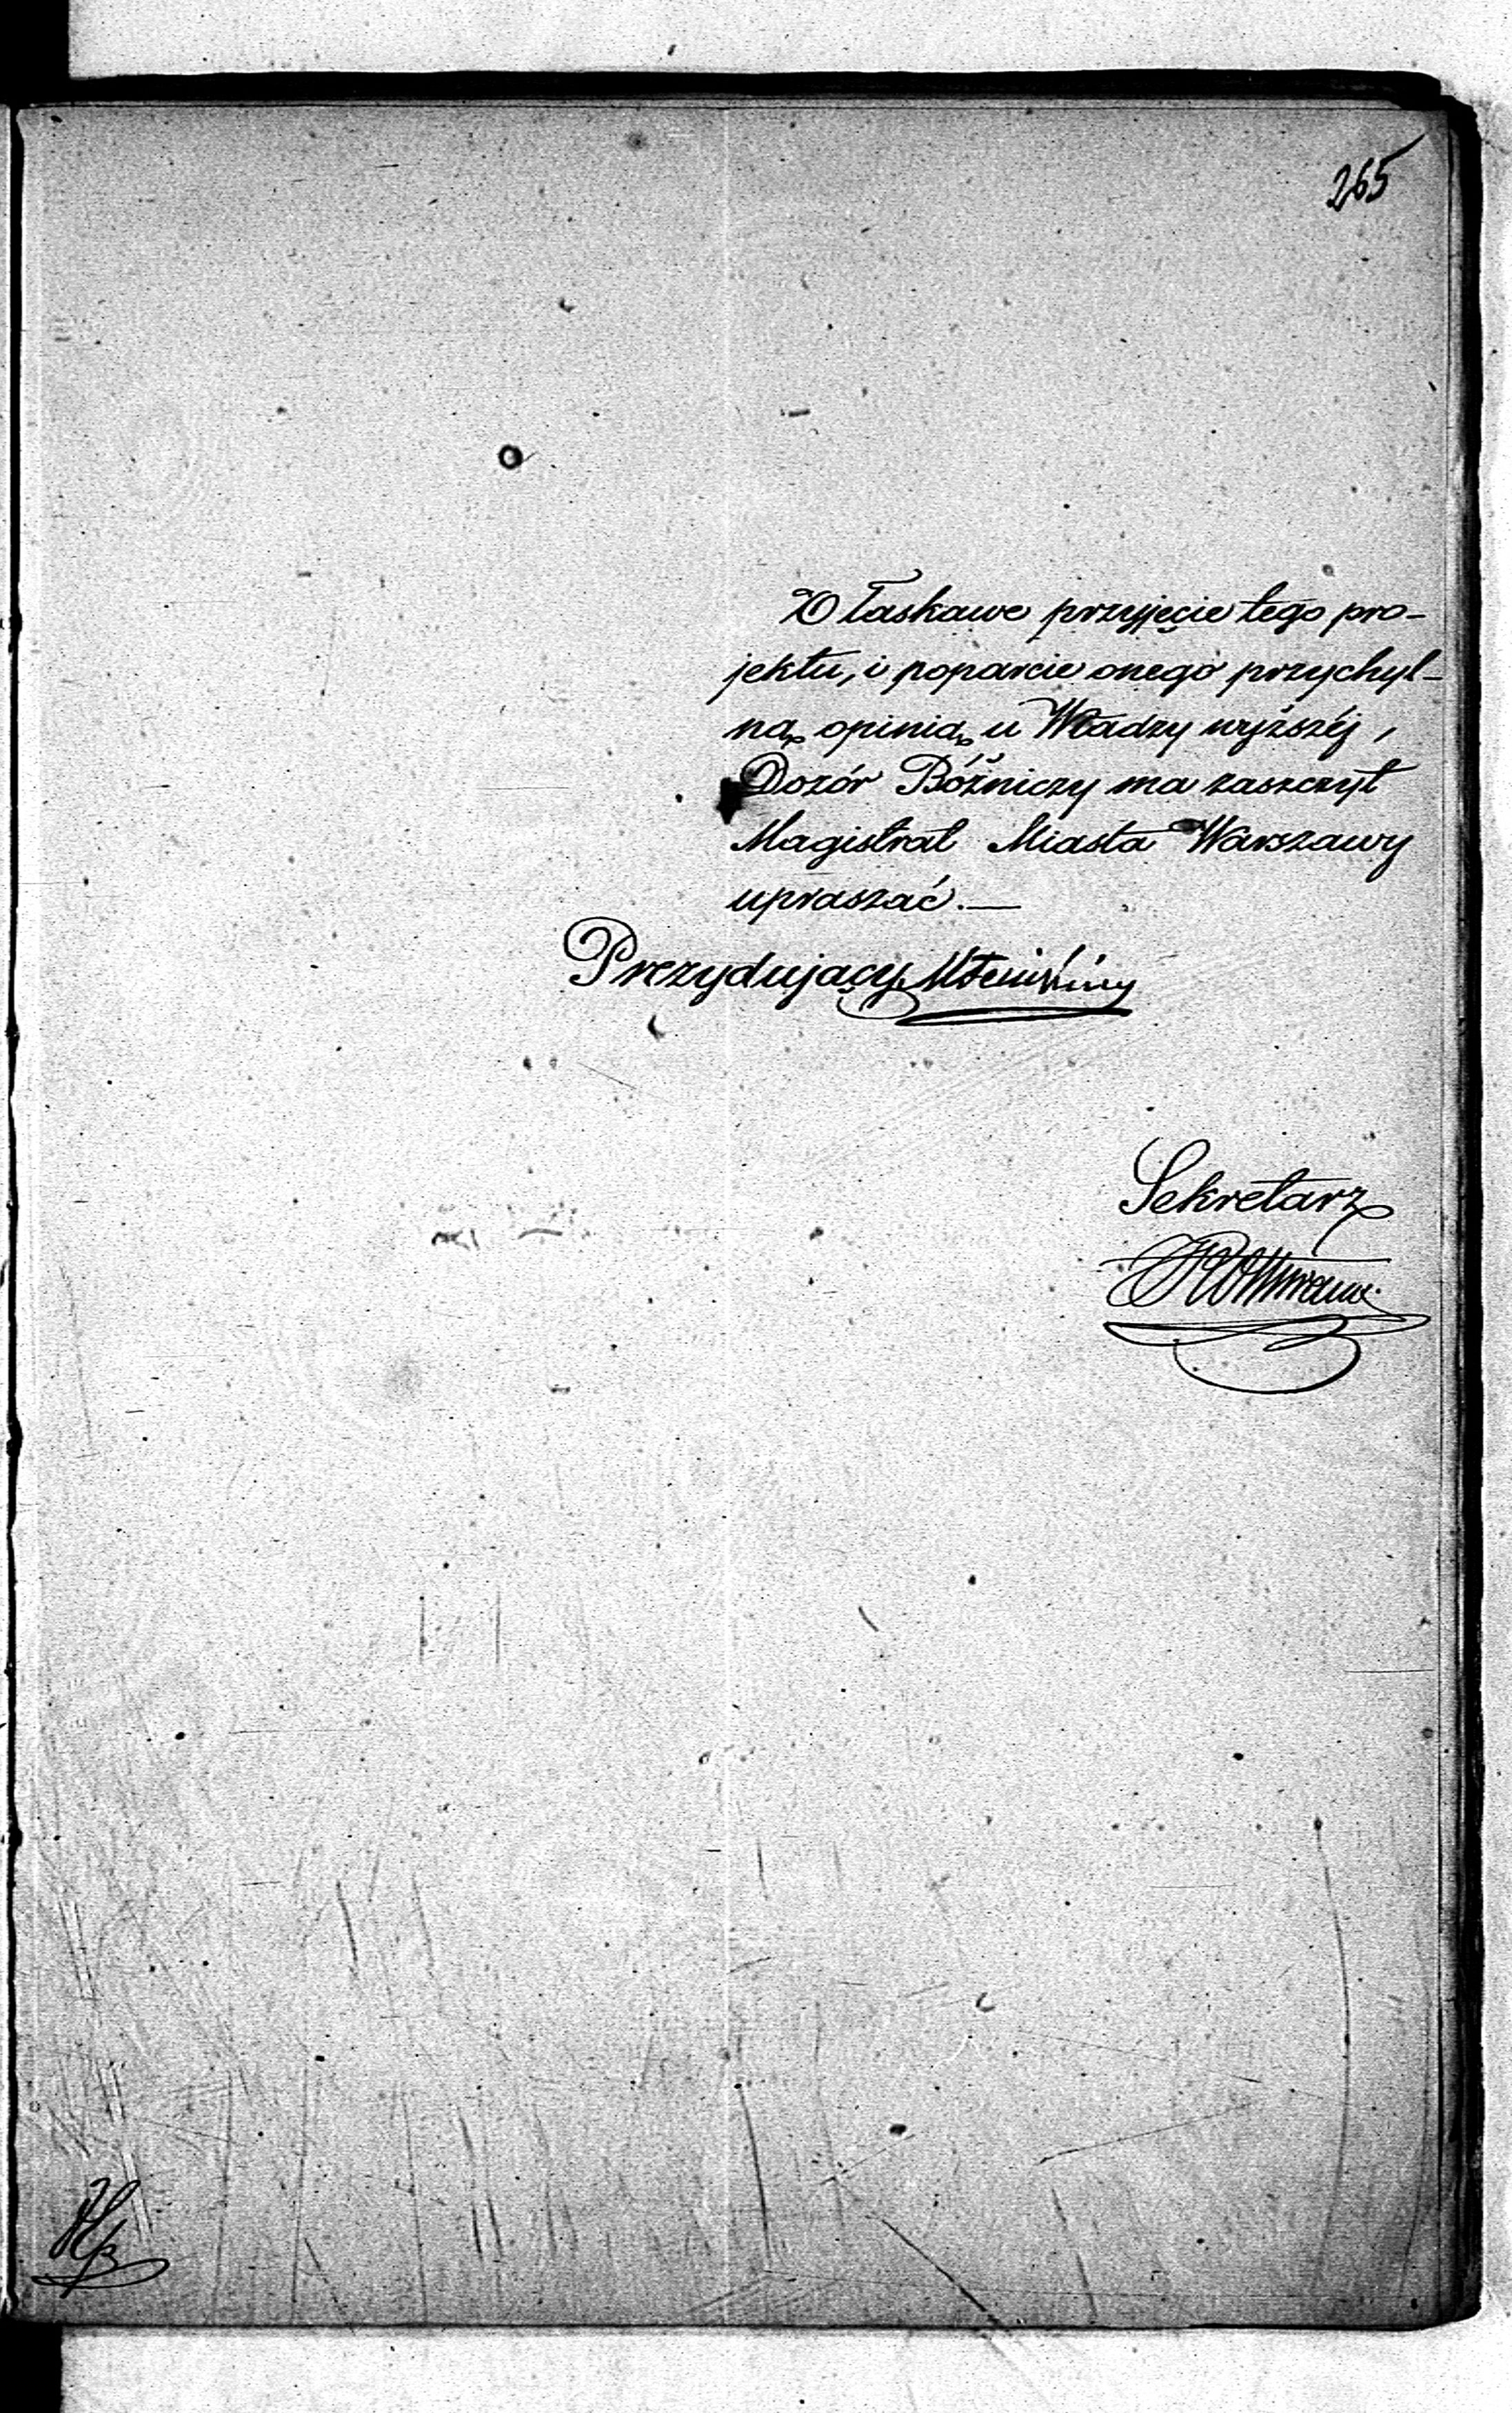 265
O łaskawe przyjęcie tego pro-
jektu, i poparcie onego przychyl-
ną opinią u Władzy wyższéj,
Dozór Bóżniczy ma zaszczyt
Magistrat Miasta Warszawy
upraszać.—
Prezydujący
Sekretarz